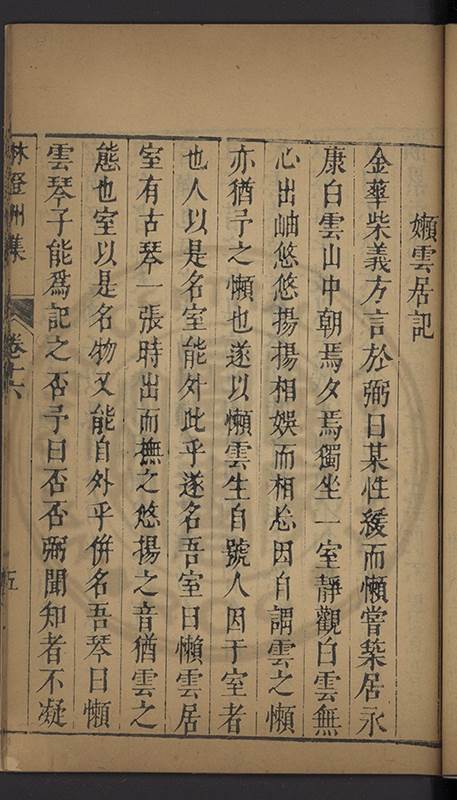 嬾雲居記
金華柴義方言於弼曰某性緩而懶嘗築居永
康白雲山中朝焉夕焉獨坐一室靜觀白雲無
心出岫悠悠揚揚相娛而相忘因自謂雲之懶
亦猶予之懶也遂以懶雲生自號人因于室者
也人以是名室能外此乎遂名吾室曰懶雲居
室有古琴一張時出而撫之悠揚之音猶雲之
態也室以是名物又能自外乎併名吾琴曰懶
雲琴子能爲記之否予曰否否弼聞知者不凝
林登州集
卷十六
五